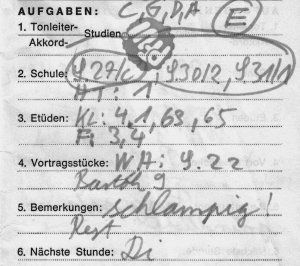 AUFGABEN: C, G, D, A E
1. Tonleiter- Studien
Akkord-
2. Schule: S 27/6, S 30/2, S 31/1
HT: 1
3. Etüden: KL: 4, 1, 63, 65
F: 3, 4
4. Vortragsstücke: WA: S. 22
9
5. Bemerkungen: schlampig!
Rest
6. Nächste Stunde: Di